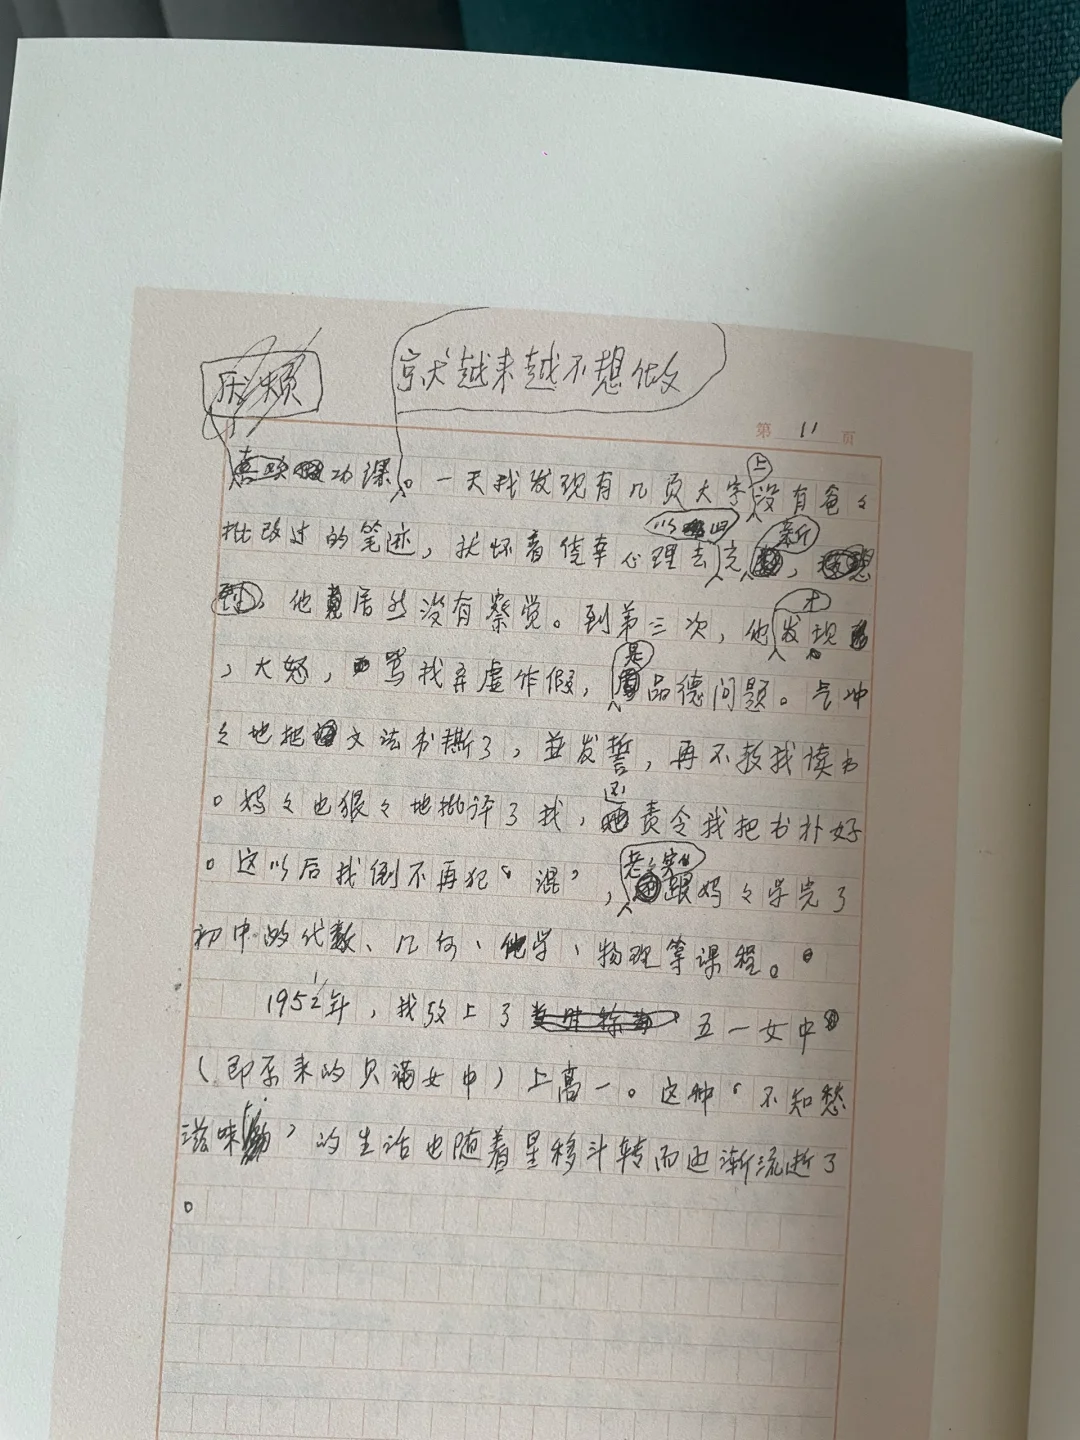 就越来越不想做
第 11 页
功课。一天我发现有几页大字上没有爸々
批改过的笔迹，就怀着侥幸心理去充新，
他居然没有察觉。到第三次，他才发现
，大怒，骂我弄虚作假，是品德问题。气冲
々地把文法书撕了，并发誓，再不教我读书
。妈々也狠々地批评了我，还责令我把书补好
。这以后我倒不再犯“混”，老々实々跟妈々学完了
初中的代数、几何、化学、物理等课程。
1952年，我考上了五一女中
（即原来的贝满女中）上高一。这种“不知愁
滋味”的生活也随着星移斗转而逐渐流逝了
。